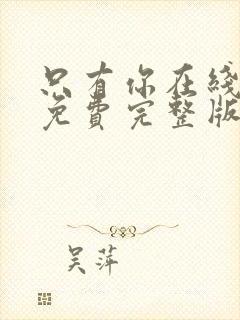 只有你在线
免费完整版
吴萍